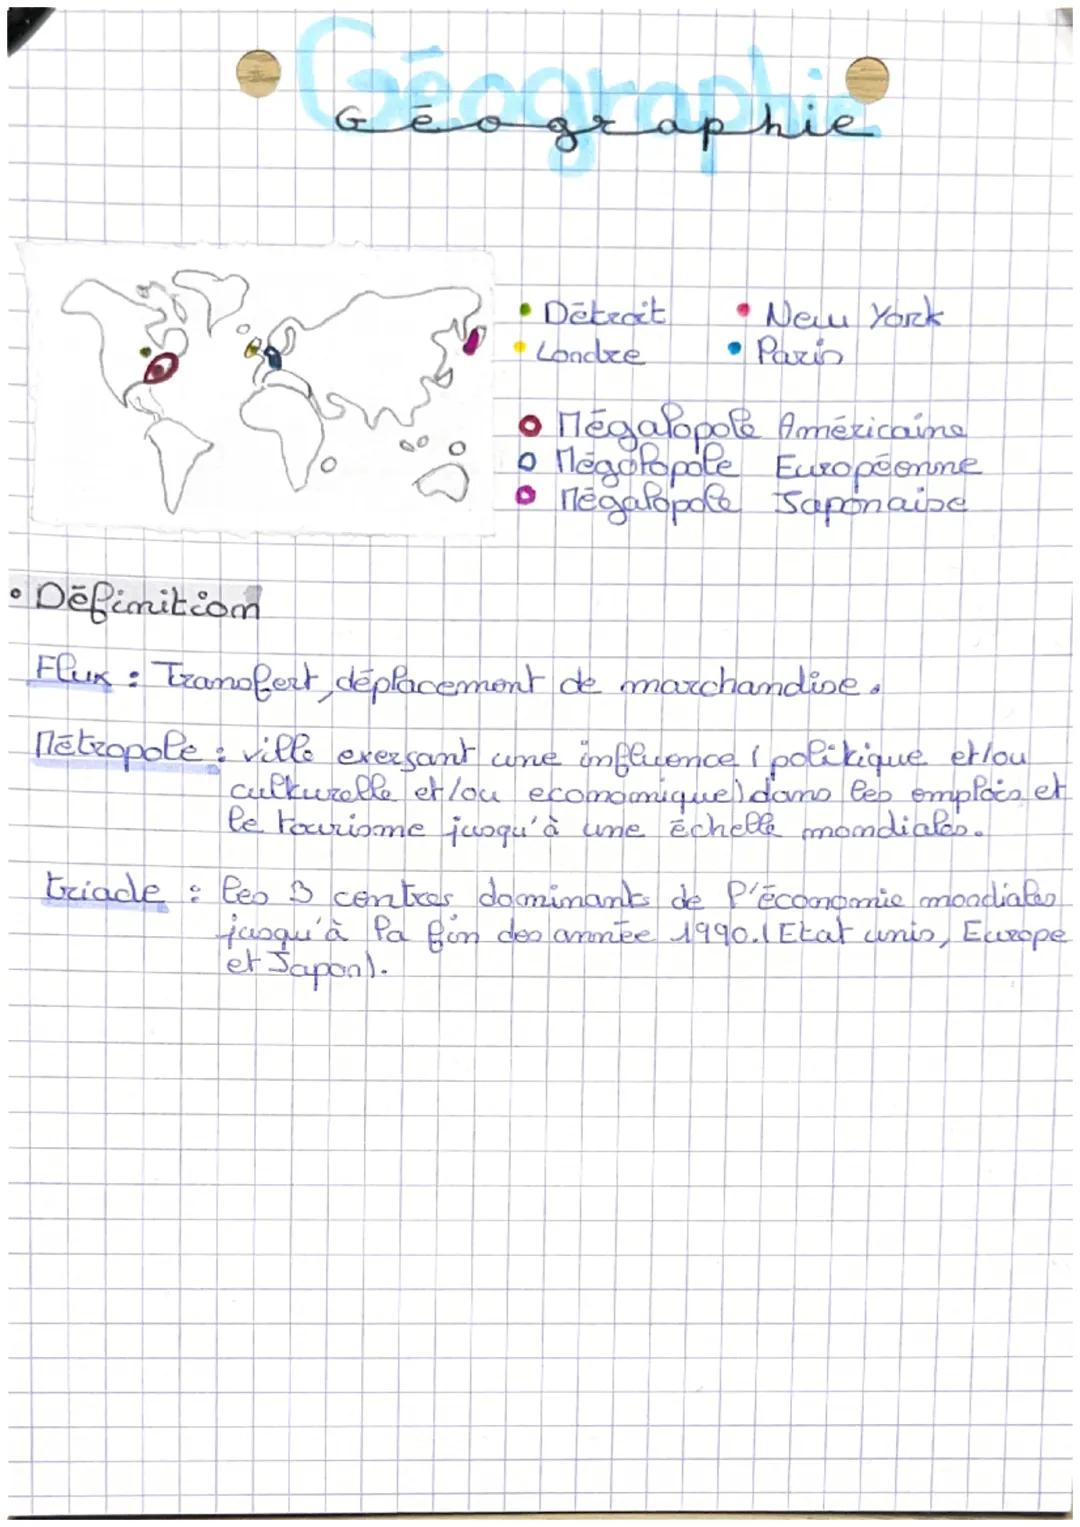 Géographie
Géographie
Détroit
New York
Londre
Paris
Mégalopole Américaine
Mégalopole Européenne
Mégalopole Japonaise
• Définition
Flux : Transfert, déplacement de marchandise.
Métropole : ville exersant une influence (politique et/ou
culturelle et/ou economique) dans les emplois et
le tourisme jusqu'à une échelle mondiales.
triade : les 3 centres dominants de l'économie mondiales
jusqu'à la fin des année 1990. (Etat unis, Europe
et Japon).